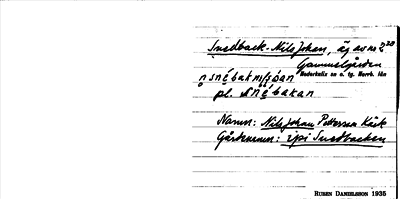 Snedback-Nils Johan, äg av no 2²⁰
Gammelgården
Nederkalix sn o. tg. Norrb. län
snébakni̯sjóan
pl. snébakan
Namn: Nils Johan Pettersson Käck
Gårdsnamn: ipi Snedbacken
RUBEN DANIELSSON 1935